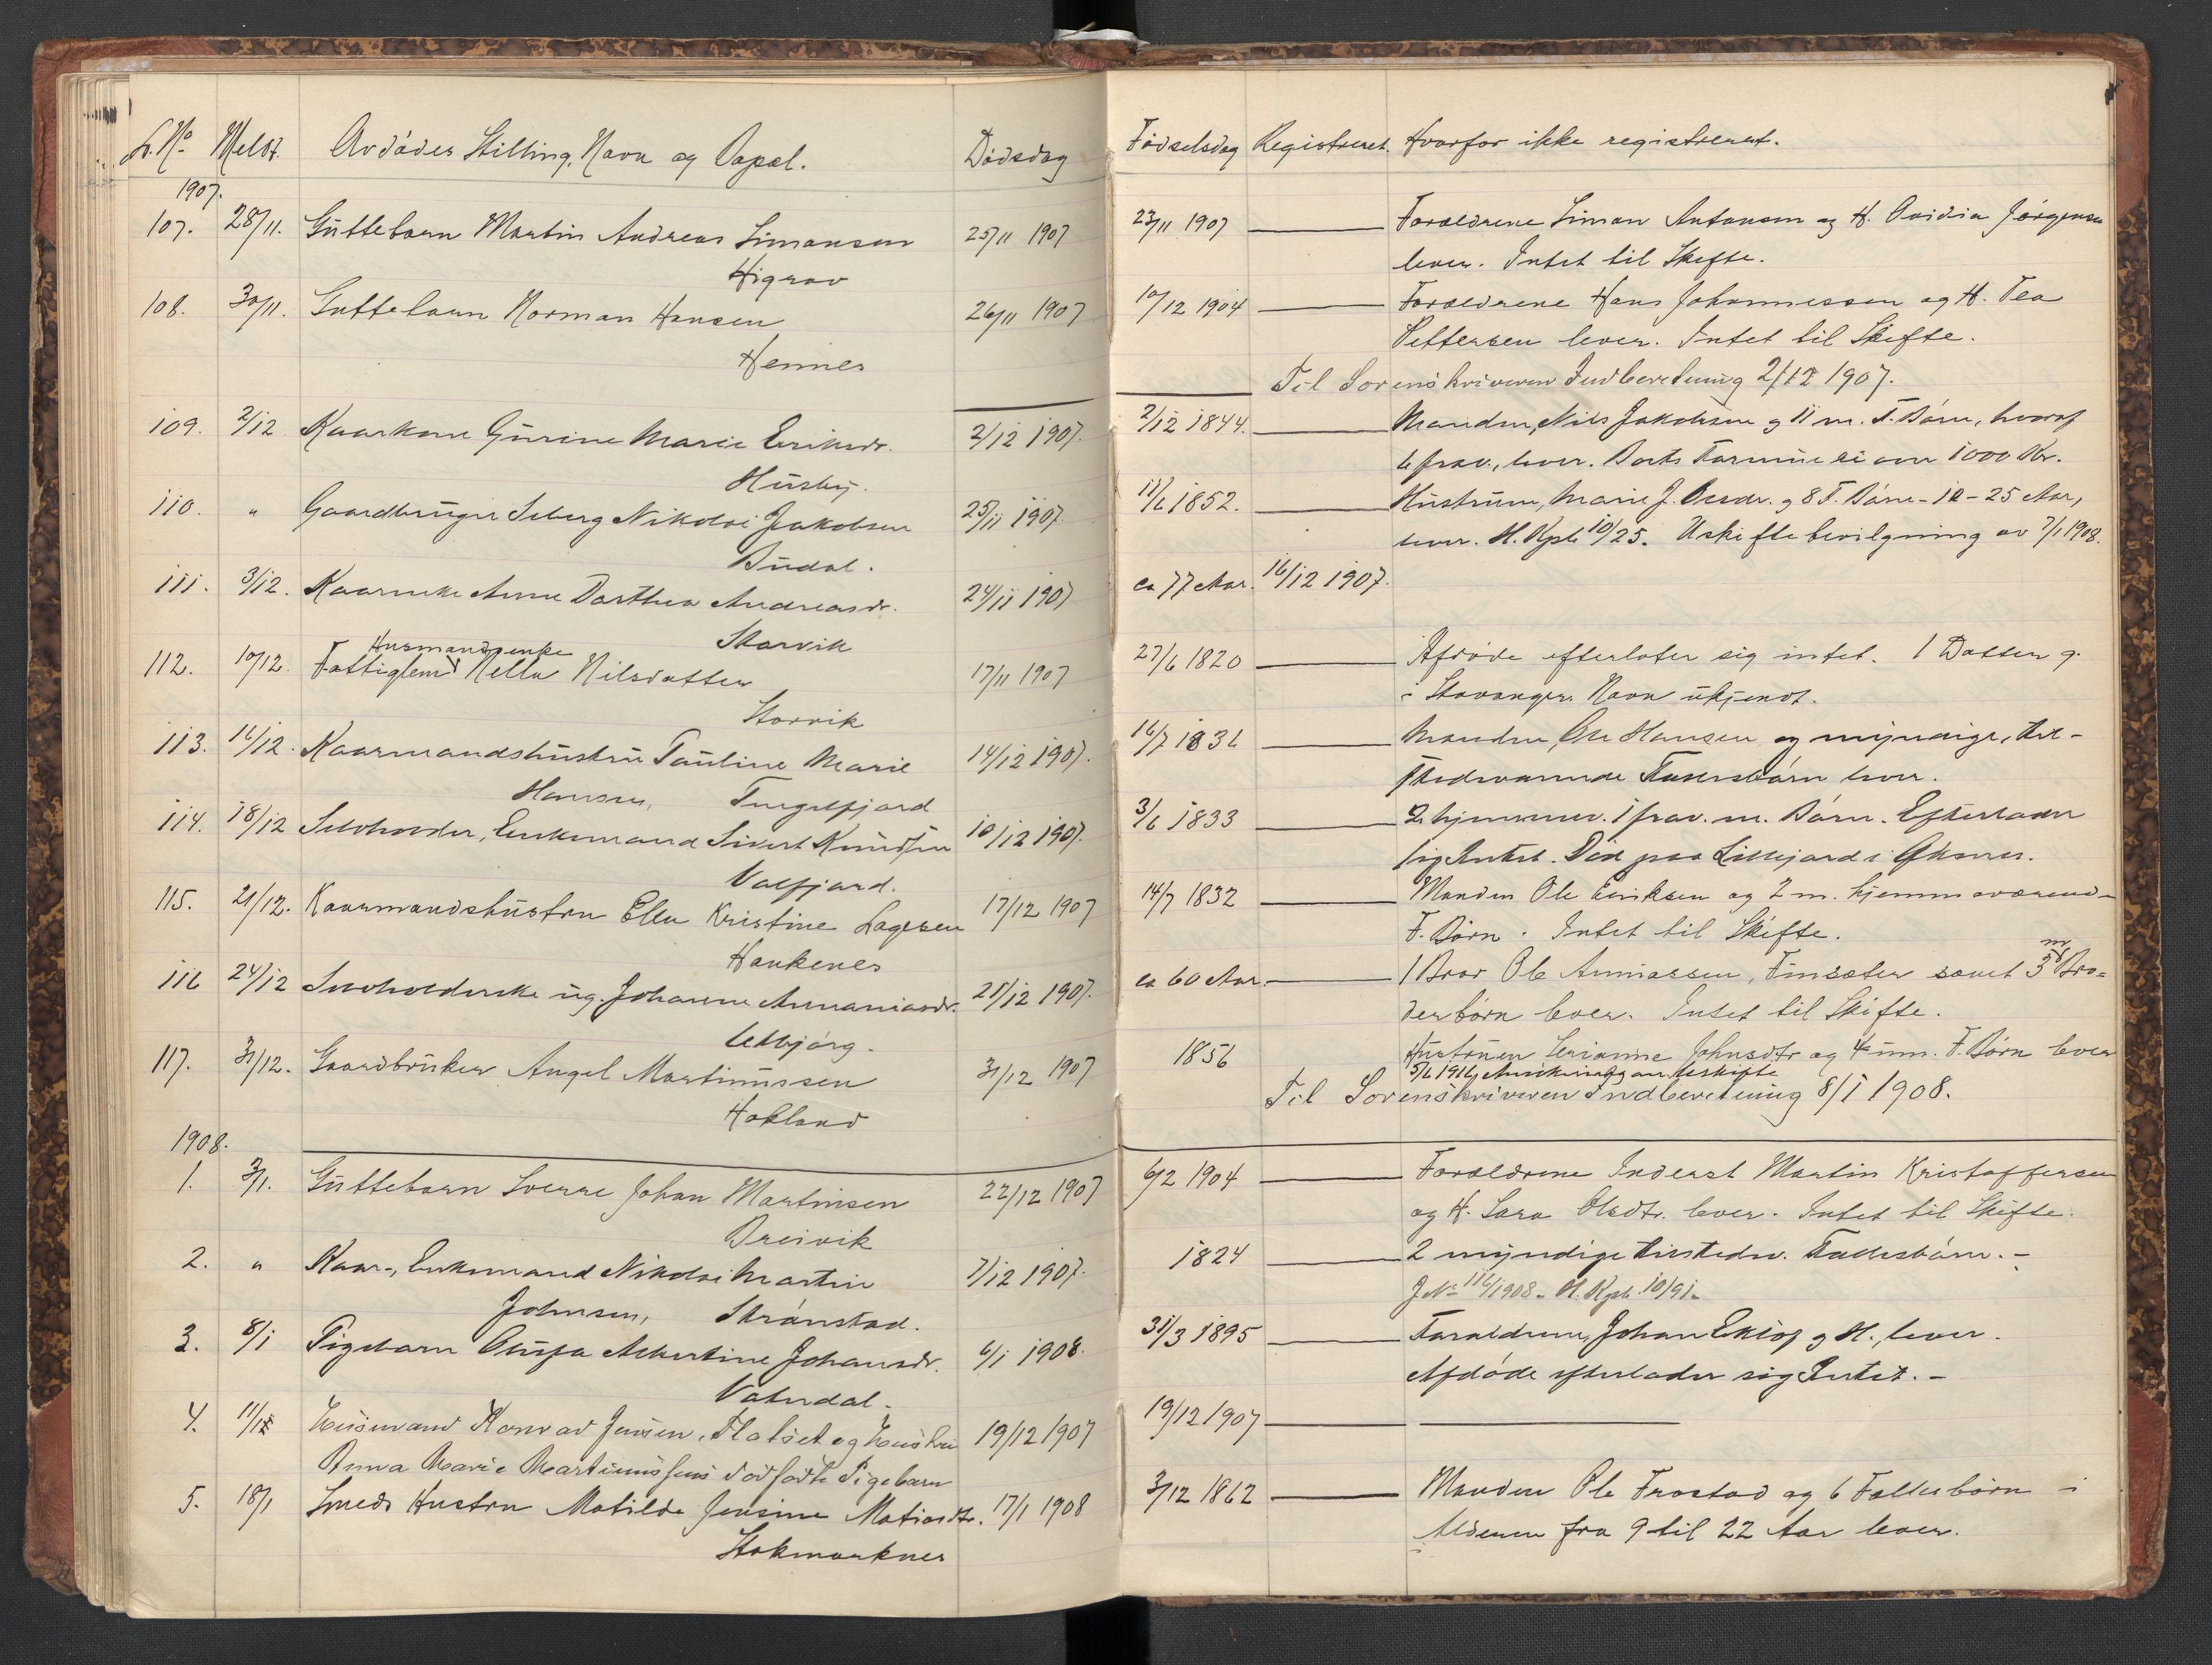 L. No Meldt. Avdødes Stilling, Navn og Bopæl. Dødsdag Fødselsdag Registreret. Hvorfor ikke registreret.
1907.
107. 28/11. Guttebarn Martin Andreas Simonsen 25/11 1907 23/11 1907 Forældrene Simon Antonsen og H. Ovidia Jørgensen
Higrav lever. Intet til Skifte.
108. 30/11. Guttebarn Norman Hansen 26/11 1907 10/12 1904 Forældrene Hans Johannessen og H. Tea
Hennes Pettersen lever. Intet til Skifte.
Til Sorenskriveren Indberetning 2/12 1907.
109. 2/12 Kaarkone Gurine Marie Eriksdr. 2/12 1907. 2/12 1844. Manden, Nils Jakobsen og 11 m. F. Børn, hvoraf
Husby. 6 frav., lever. Boets Formue ei over 1000 Kr.
110. " Gaardbruger Seberg Nikolai Jakobsen 25/11 1907. 1852. Hustruen, Marie J. og 8 F. Børn - 10 - 25 Aar,
Budal. lever. H. Kpt. 10/25. Uskiftebevilgning av 7/1 1908.
111. 3/12. Kaarenke Anne Dorthea Andreasdr. 24/11 1907 ca 77 Aar. 16/12 1907.
Storvik
112. 10/12. Fattiglem Husmandsenke Nella Nilsdatter 17/11 1907 27/6 1820 Afdøde efterlater sig intet. 1 Datter g.
Storvik i Stavanger. Navn ukjendt.
113. 16/12. Kaarmandshustru Pauline Marie 14/12 1907. 16/7 1836 Manden, Ole Hansen og myndige, til-
Hansen, Tengelfjord stedeværende Fællesbørn lever.
114. 18/12 Selvholder, Enkemand Sivert Knudsen 10/12 1907. 3/6 1833 2 hjemmev. 1 frav. m. Børn. Efterlader
Valfjord. sig Intet. Død paa Lillejord i Øksnes.
115. 21/12. Kaarmandshustru Ellen Kristine Lagesen 17/12 1907 14/7 1832 Manden Ole Eriksen og 2 m. hjemmeværend-
Haukenes F. Børn. Intet til Skifte.
116 24/12 Selvholderske ug. Johanne Annaniasdr. 21/12 1907. ca 60 Aar. 1 Bror Ole Anniassen, Finsæter samt 3 m Bro-
lever. derbørn lever. Intet til Skifte.
117. 31/12. Gaardbruker Angel Martinussen 31/12 1907 1856 Hustruen Serianne Johnsdtr og 4 um. F. Børn lever
Hokland 5/6 1916
Til Sorenskriveren Indberetning 8/1 1908.
1908.
1. 3/1. Guttebarn Sverre Johan Martinsen 22/12 1907 6/2 1904 Forældrene Inderst Martin Kristoffersen
Breivik og H. Sara Olsdtr. lever. Intet til Skifte.
2. " Kaar-, Enkemand Nikolai Martin 7/12 1907. 1824 2 myndige tilstedev. Fællesbørn. -
Johnsen, Skrånstad. J.No 116/1908. H. Kpt. 10/91.
3. 8/1 Pigebarn Albertine Johansdr. 6/1 1908. 31/3 1895 Forældrene, Johan Eklöf og H., lever.
Vatndal. Afdøde efterlader sig Intet. -
4. 11/1 Husmand Konrad Jensen, Flatset og Hustru 19/12 1907 19/12 1907
Anna Marie Martinussens dødfødte Pigebarn
5. 18/1 Smeds Hustru Matilde Jensine Matiasdtr. 17/1 1908 3/12 1862 Manden Ole Frostad og 6 Fællesbørn i
Stokmarknes Alderen fra 9 til 22 Aar lever.